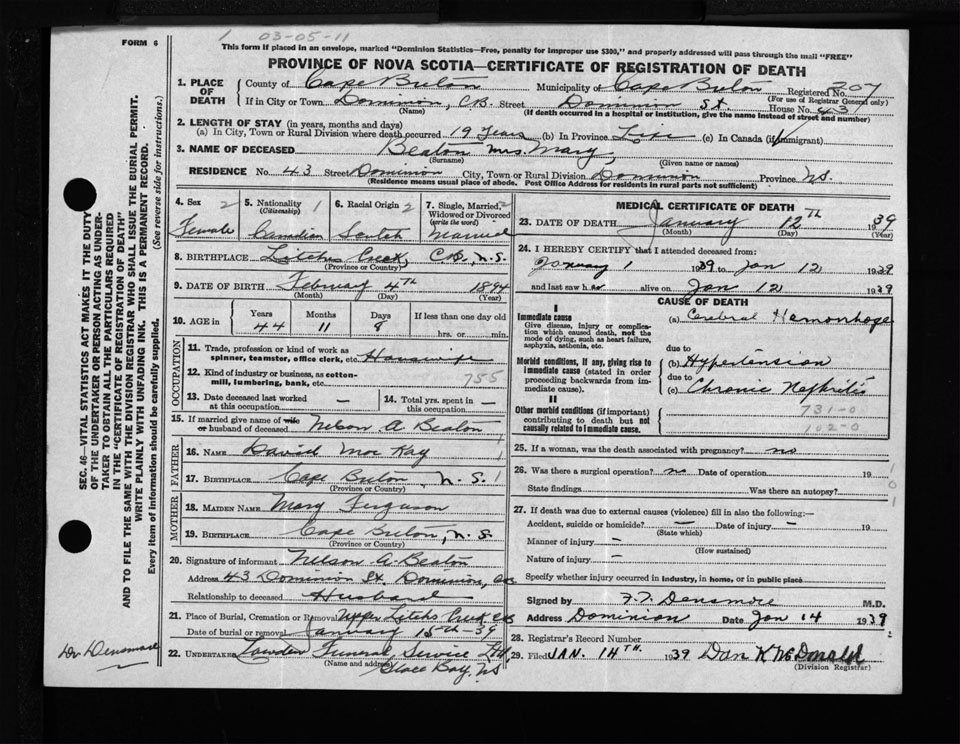 1 03-05-11
FORM 6
This form if placed in an envelope, marked "Dominion Statistics—Free, penalty for improper use $300," and properly addressed will pass through the mail "FREE"
PROVINCE OF NOVA SCOTIA—CERTIFICATE OF REGISTRATION OF DEATH
SEC. 46—VITAL STATISTICS ACT MAKES IT THE DUTY
OF THE UNDERTAKER OR PERSON ACTING AS UNDER-
TAKER TO OBTAIN ALL THE PARTICULARS REQUIRED
IN THE "CERTIFICATE OF REGISTRATION OF DEATH"
AND TO FILE THE SAME WITH THE DIVISION REGISTRAR WHO SHALL ISSUE THE BURIAL PERMIT.
WRITE PLAINLY WITH UNFADING INK. THIS IS A PERMANENT RECORD.
Every item of information should be carefully supplied. (See reverse side for instructions.)
Dr Densmore
1. PLACE OF DEATH County of Cape Breton Municipality of Cape Breton Registered No. 207
(For use of Registrar General only)
If in City or Town Dominion, C.B. Street Dominion St. House No. 43
(Name) (If death occurred in a hospital or institution, give the name instead of street and number)
2. LENGTH OF STAY (in years, months and days)
(a) In City, Town or Rural Division where death occurred 19 Years (b) In Province Life (c) In Canada (if immigrant)
3. NAME OF DECEASED Beaton Mrs. Mary,
(Surname) (Given name or names)
RESIDENCE No. 43 Street Dominion City, Town or Rural Division Dominion Province N.S.
(Residence means usual place of abode. Post Office Address for residents in rural parts not sufficient)
4. Sex 2 Female
5. Nationality (Citizenship) 1 Canadian
6. Racial Origin 2 Scotch
7. Single, Married, Widowed or Divorced (write the word) 2 Married
8. BIRTHPLACE Litches Creek, C.B., N.S.
(Province or Country)
9. DATE OF BIRTH February 4th 1894
(Month) (Day) (Year)
10. AGE in Years 44 Months 11 Days 8 If less than one day old
hrs. or min.
OCCUPATION
11. Trade, profession or kind of work as spinner, teamster, office clerk, etc. Housewife
12. Kind of industry or business, as cotton-mill, lumbering, bank, etc. 755
13. Date deceased last worked at this occupation —
14. Total yrs. spent in this occupation —
15. If married give name of wife or husband of deceased Nelson A Beaton
FATHER
16. NAME David MacKay
17. BIRTHPLACE Cape Breton, N.S.
(Province or Country)
MOTHER
18. MAIDEN NAME Mary Ferguson
19. BIRTHPLACE Cape Breton, N.S.
(Province or Country)
20. Signature of informant Nelson A. Beaton
Address 43 Dominion St. Dominion, CB
Relationship to deceased Husband
21. Place of Burial, Cremation or Removal Upper Litchs Creek CB
Date of burial or removal January 15th-39
22. UNDERTAKER Lowden Funeral Service Ltd,
(Name and address) Glace Bay, NS
MEDICAL CERTIFICATE OF DEATH
23. DATE OF DEATH January 12th 1939
(Month) (Day) (Year)
24. I HEREBY CERTIFY that I attended deceased from:
January 1 1939 to Jan 12 1939
and last saw her alive on Jan 12 1939
CAUSE OF DEATH
I
Immediate cause
Give disease, injury or complication which caused death, not the mode of dying, such as heart failure, asphyxia, asthenia, etc.
(a) Cerebral Hemorrhage
due to
Morbid conditions, if any, giving rise to immediate cause (stated in order proceeding backwards from immediate cause).
(b) Hypertension
due to
(c) Chronic Nephritis
II
Other morbid conditions (if important) contributing to death but not causally related to immediate cause.
731-0
102-0
25. If a woman, was the death associated with pregnancy? no
26. Was there a surgical operation? no Date of operation 19
State findings Was there an autopsy?
27. If death was due to external causes (violence) fill in also the following:—
Accident, suicide or homicide? — Date of injury — 19
(State which)
Manner of injury —
(How sustained)
Nature of injury —
Specify whether injury occurred in industry, in home, or in public place
Signed by F. T. Densmore M.D.
Address Dominion Date Jan 14 1939
28. Registrar's Record Number
29. Filed JAN. 14TH. 1939 Dan K McDonald
(Division Registrar)